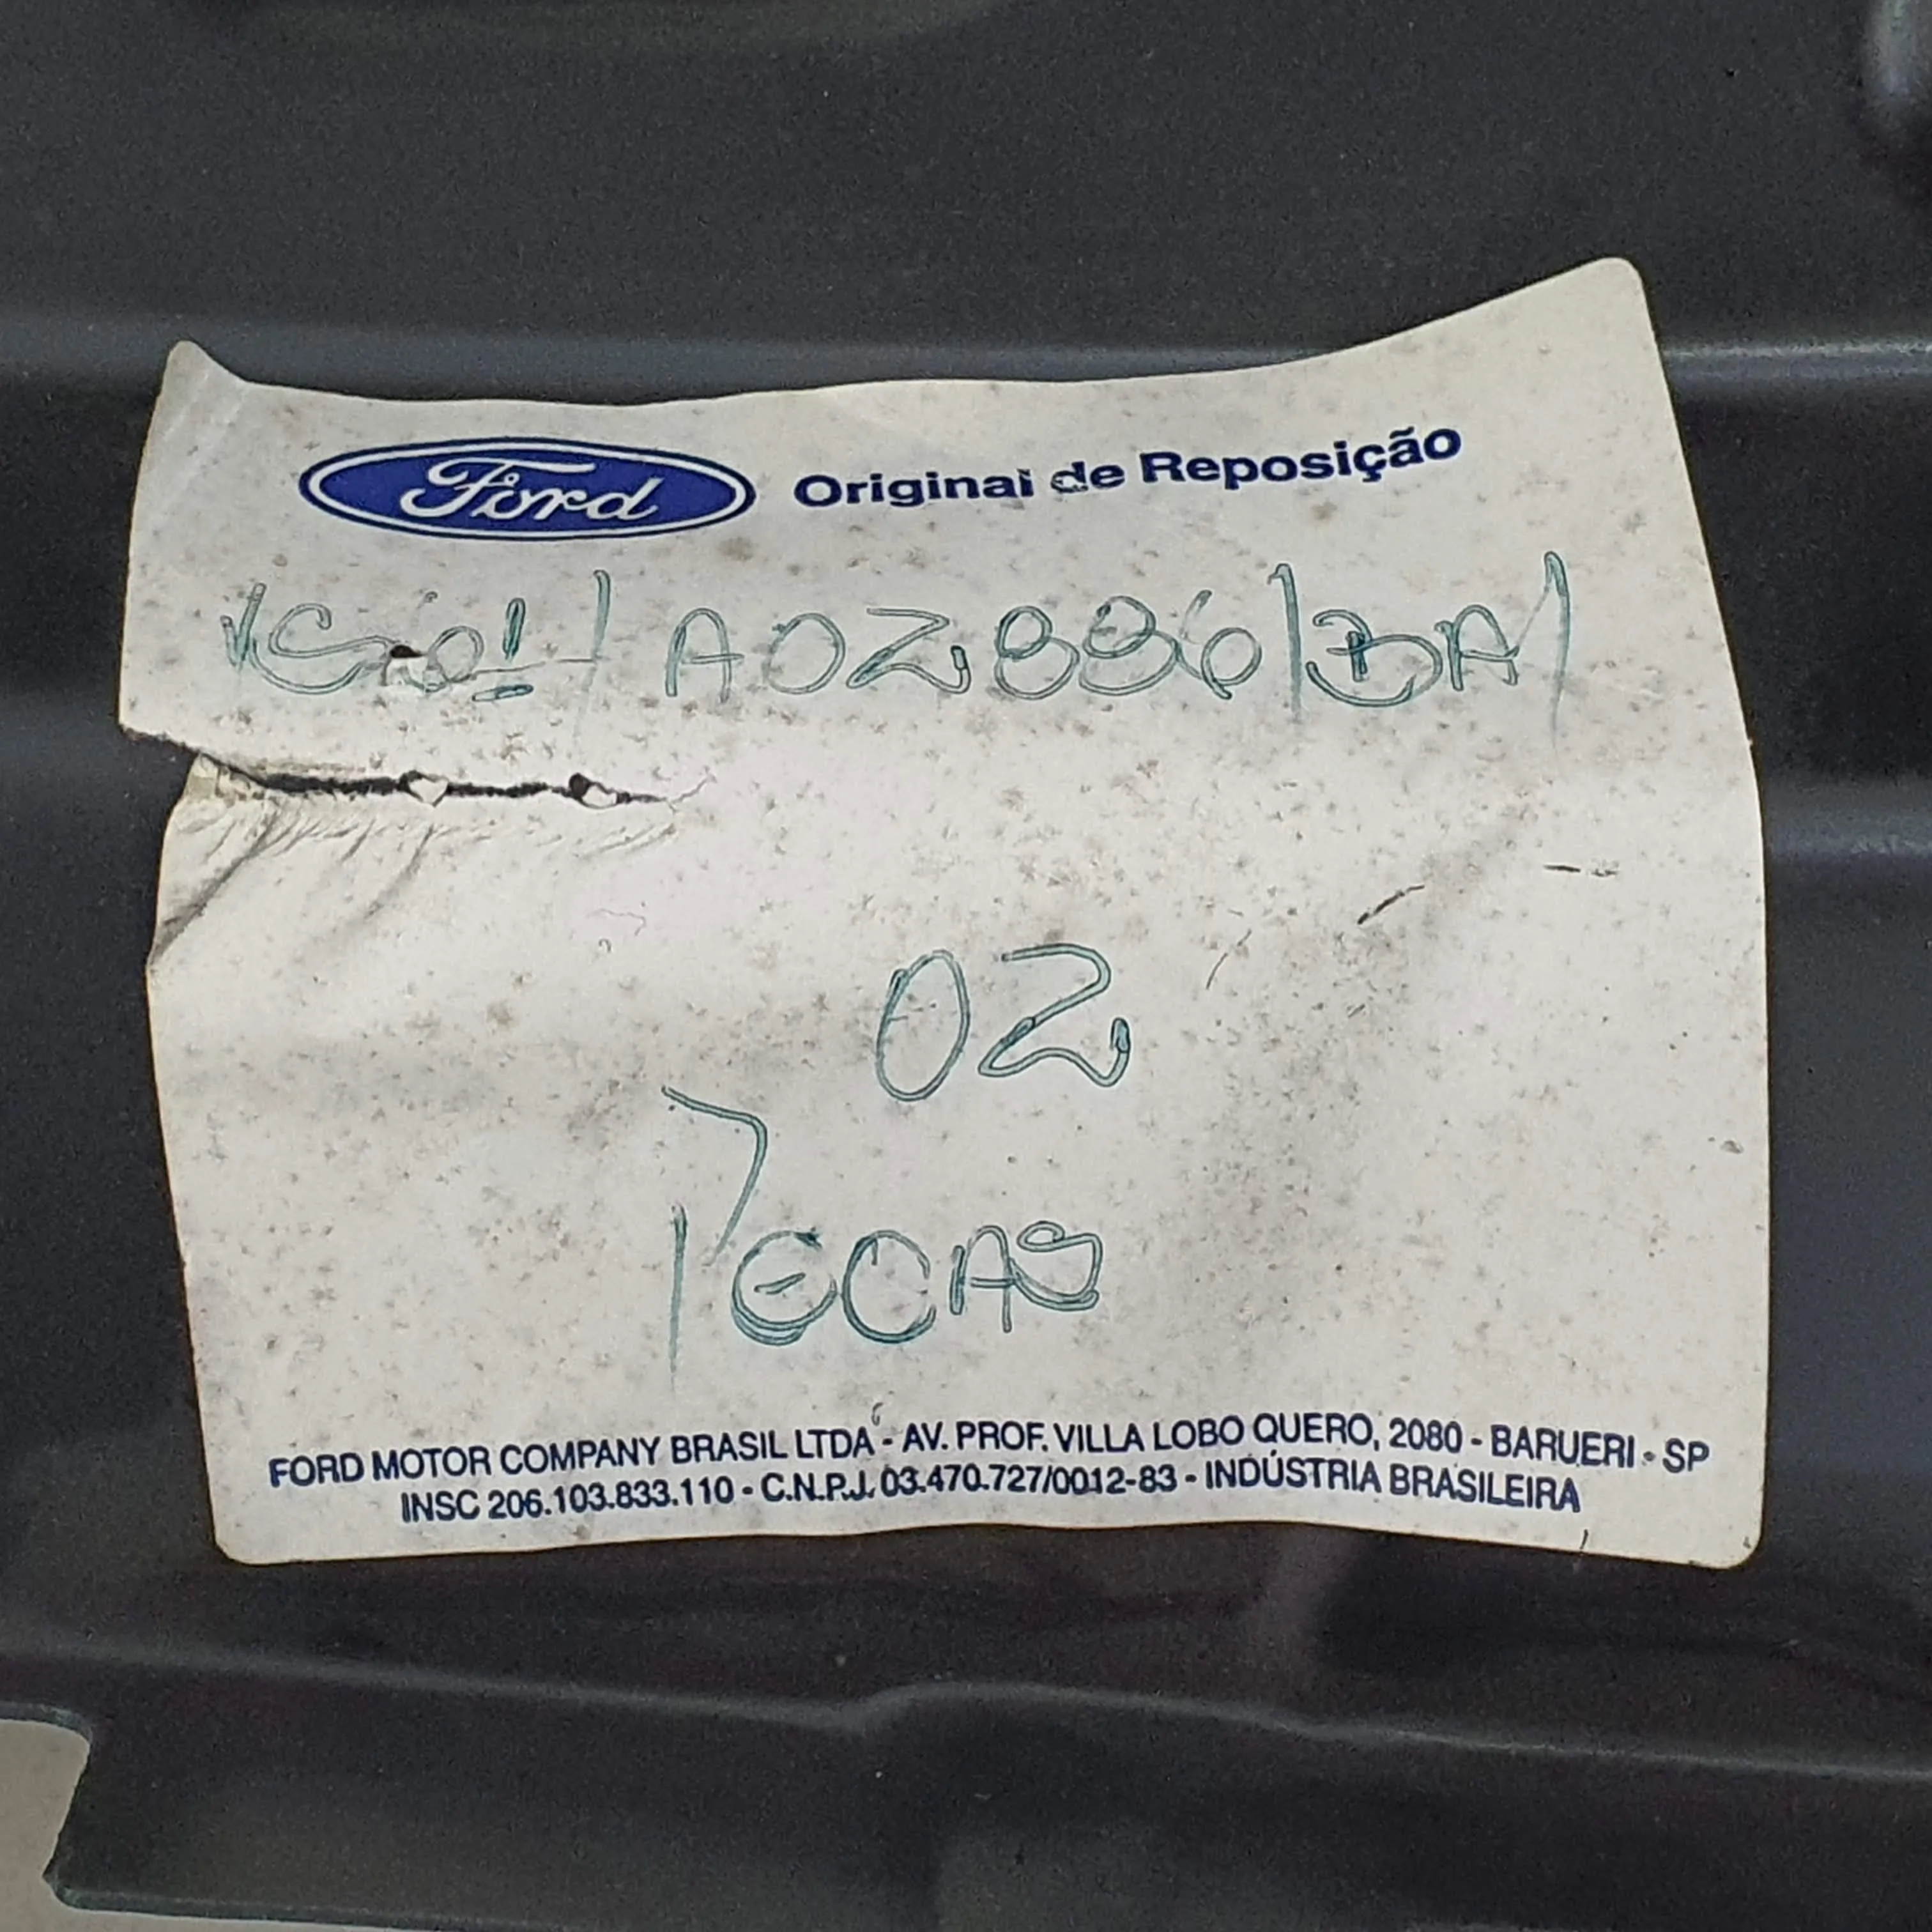 Ford Original de Reposição
/A02886/BA/
02
PECAS
FORD MOTOR COMPANY BRASIL LTDA - AV. PROF. VILLA LOBO QUERO, 2080 - BARUERI - SP
INSC 206.103.833.110 - C.N.P.J. 03.470.727/0012-83 - INDÚSTRIA BRASILEIRA